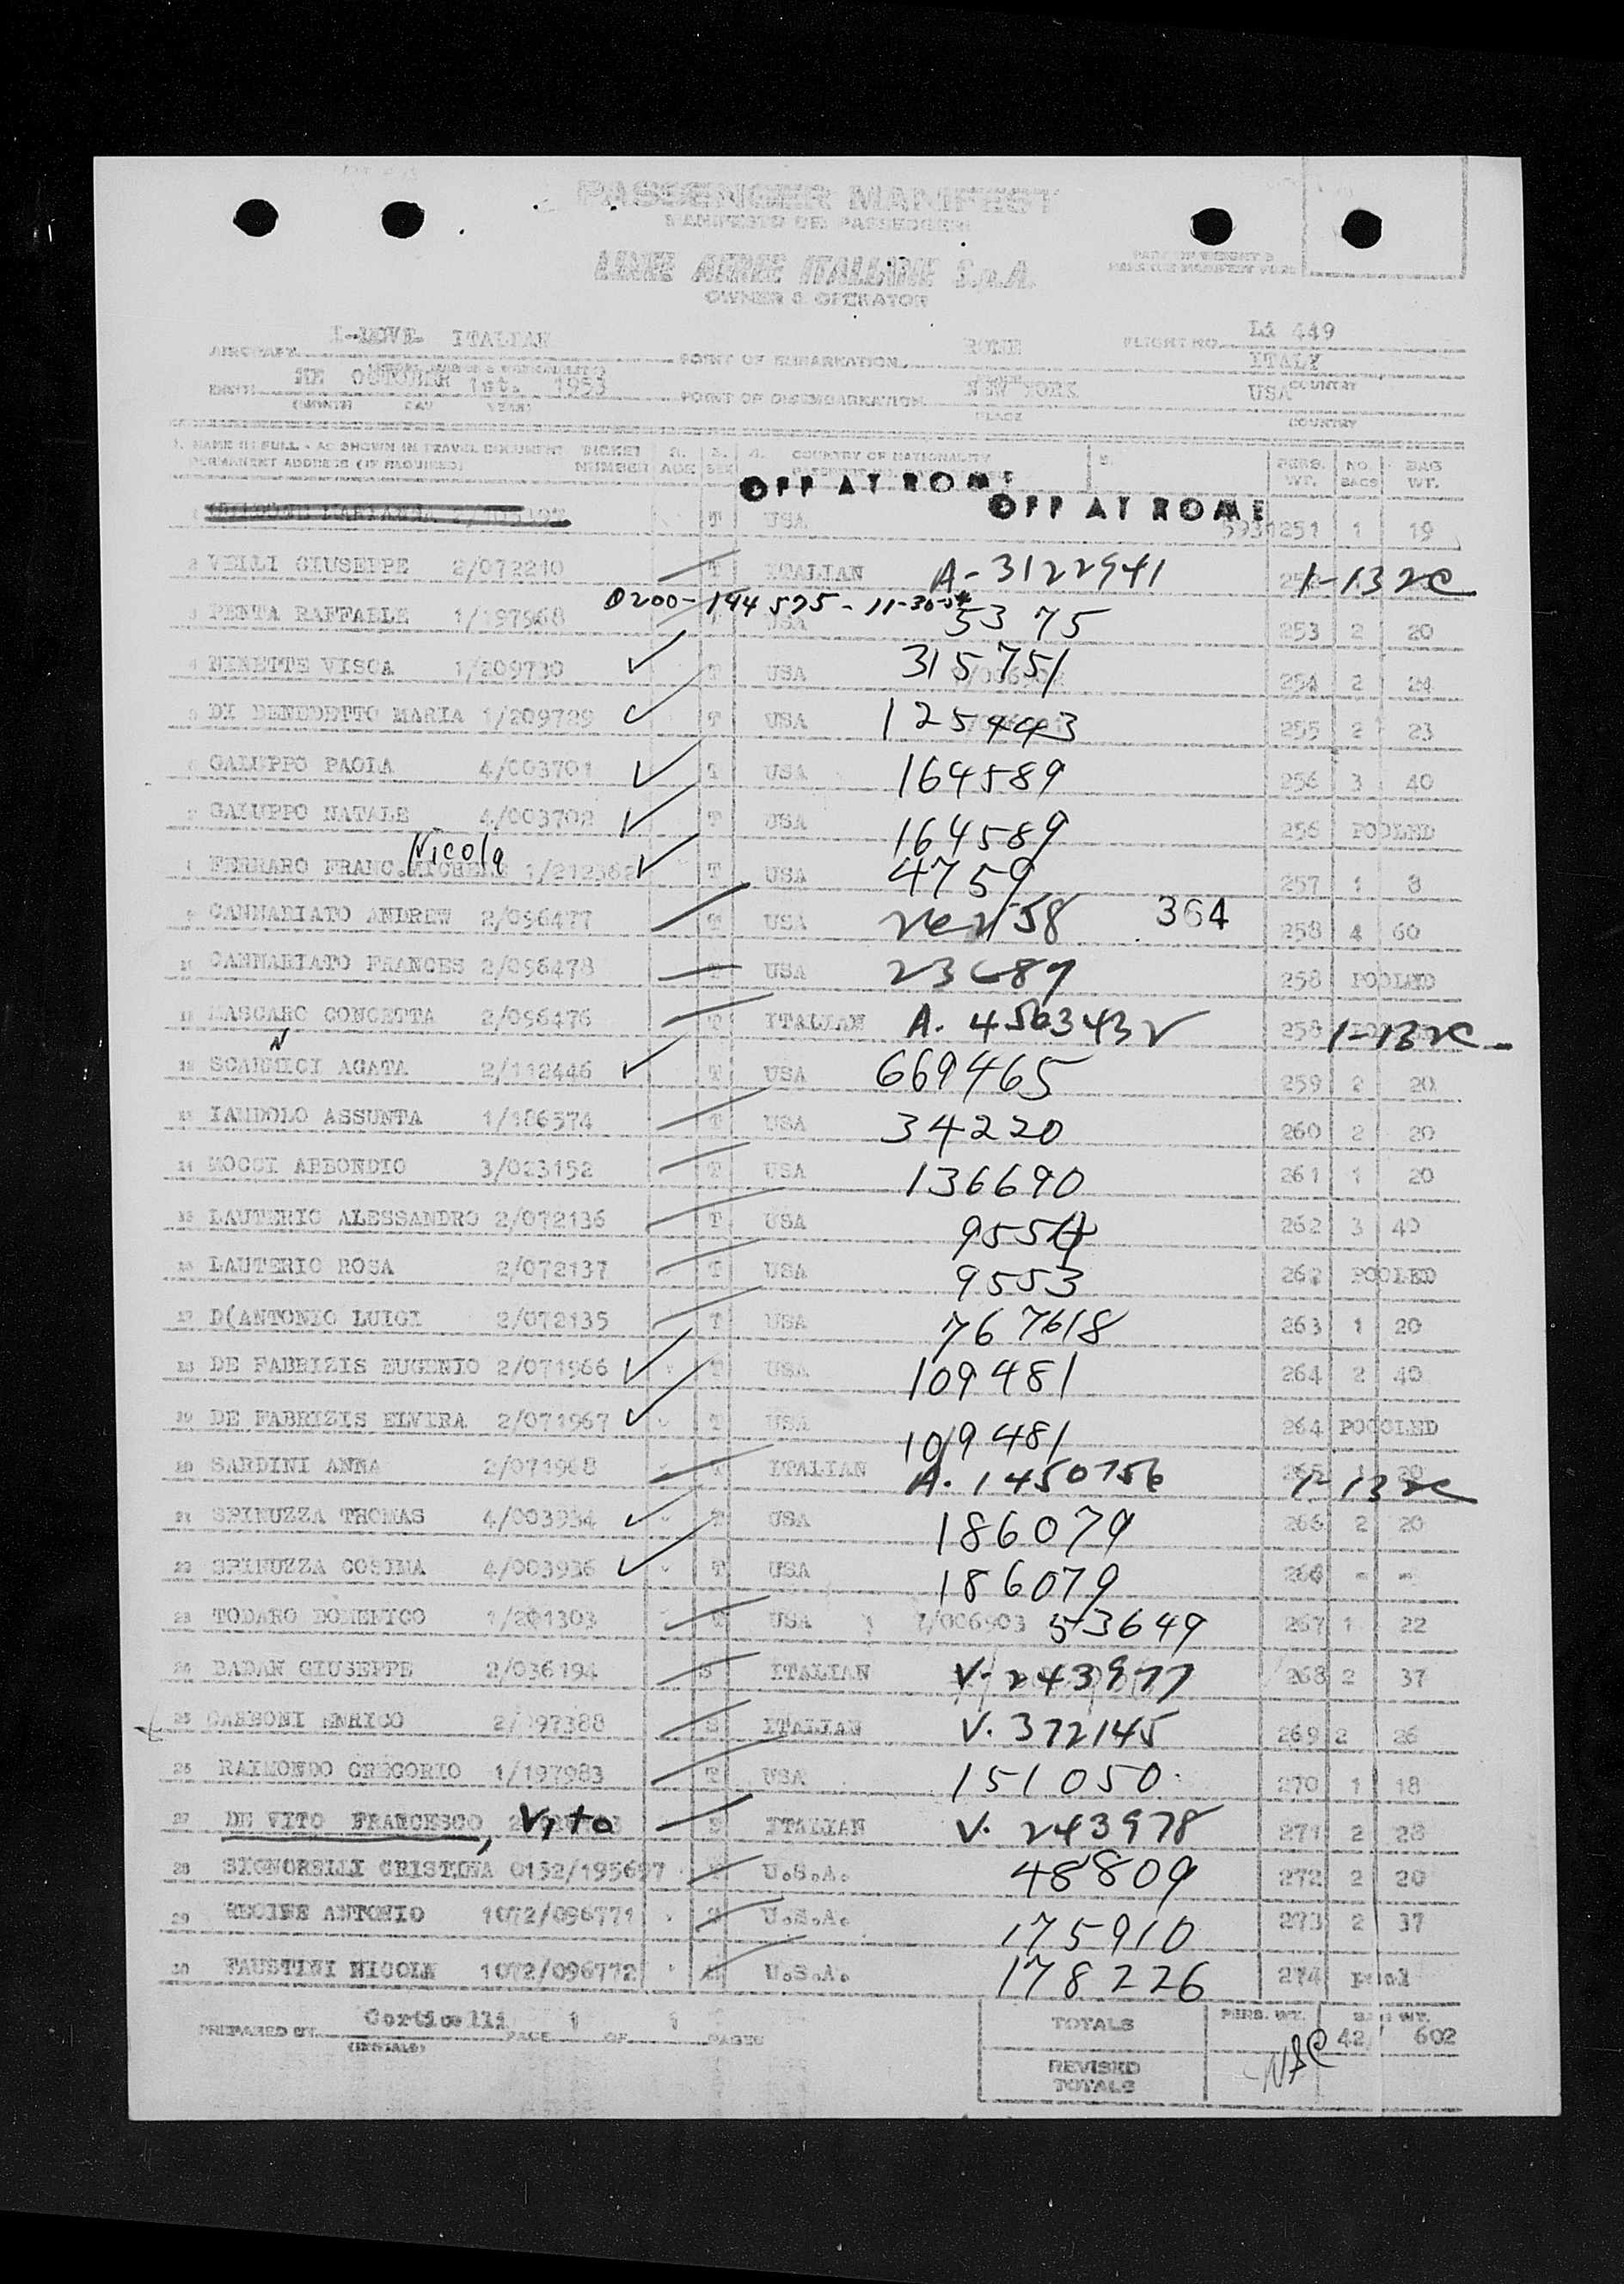 PASSENGER MANIFEST
MANIFESTO DEI PASSEGGERI
LINEE AEREE ITALIANE S.p.A.
OWNER & OPERATOR
AIRCRAFT ITALIAN POINT OF EMBARKATION ROME FLIGHT NO. LI 449
ITALY
COUNTRY
OCTOBER 1st. 1953 POINT OF DISEMBARKATION NEW YORK USA
(MONTH DAY YEAR) PLACE COUNTRY
1. NAME IN FULL - AS SHOWN IN TRAVEL DOCUMENT TICKET 2. 3. 4. COUNTRY OF NATIONALITY 5. PERS. NO. BAG
PERMANENT ADDRESS (IF REQUIRED) NUMBER AGE SEX WT. BAGS WT.
OFF AT ROME OFF AT ROME
1 T USA 251 1 19
2 VELLI GIUSEPPE 2/072210 T ITALIAN A-3122941 1-132c
0200-144575-11-30-54
3 PENTA RAFFAELE 1/197968 USA 5375 253 2 20
4 NINETTE VISCA 1/209730 T USA 315751 254 2 24
5 DI BENEDETTO MARIA 1/209729 T USA 125443 255 2 23
6 GALUPPO PAOLA 4/003701 T USA 164589 256 3 40
7 GALUPPO NATALE 4/003702 T USA 164589 256 POOLED
Nicola
8 FERRARO FRANC. 1/212362 T USA 4759 257 1 8
9 CANNARIATO ANDREW 2/096477 T USA 364 258 4 60
10 CANNARIATO FRANCES 2/096478 T USA 23689 258 POOLED
11 MASCARO CONCETTA 2/096476 T ITALIAN A. 4503432 258 1-132c
N
12 SCARMICI AGATA 2/112446 T USA 669465 259 2 20
13 IANDOLO ASSUNTA 1/186574 T USA 34220 260 2 20
14 MOCCI ABBONDIO 3/023152 T USA 136690 261 1 20
15 LAUTERIO ALESSANDRO 2/072136 T USA 9554 262 3 40
16 LAUTERIO ROSA 2/072137 T USA 9553 262 POOLED
17 D(ANTONIO LUIGI 2/072135 T USA 767618 263 1 20
18 DE FABRIZIS EUGENIO 2/071966 T USA 109481 264 2 40
19 DE FABRIZIS ELVIRA 2/071967 T USA 109481 264 POOOLED
20 SARDINI ANNA 2/071968 T ITALIAN A. 1450756 265 1-132c
21 SPINUZZA THOMAS 4/003934 T USA 186079 266 2 20
22 SPINUZZA COSIMA 4/003936 T USA 186079 266 - -
23 TODARO DOMENICO 1/201303 T USA 7/006903 53649 267 1 22
24 BADAN GIUSEPPE 2/036194 S ITALIAN V. 243977 268 2 37
25 CARBONI ENRICO 2/097388 S ITALIAN V. 372145 269 2 26
26 RAIMONDO GREGORIO 1/197983 T USA 151050 270 1 18
27 DE VITO FRANCESCO, Vito ITALIAN V. 243978 271 2 28
28 SIGNORELLI CRISTINA 0132/195697 T U.S.A. 48809 272 2 20
29 RECINE ANTONIO 1072/096771 U.S.A. 175910 273 2 37
30 FAUSTINI NICOLE 1072/096772 U.S.A. 178226 274 pool
PREPARED BY Corticelli PAGE 1 OF 1 PAGES
(INITIALS)
TOTALS PERS. WT. BAG WT.
42/ 602
REVISED
TOTALS